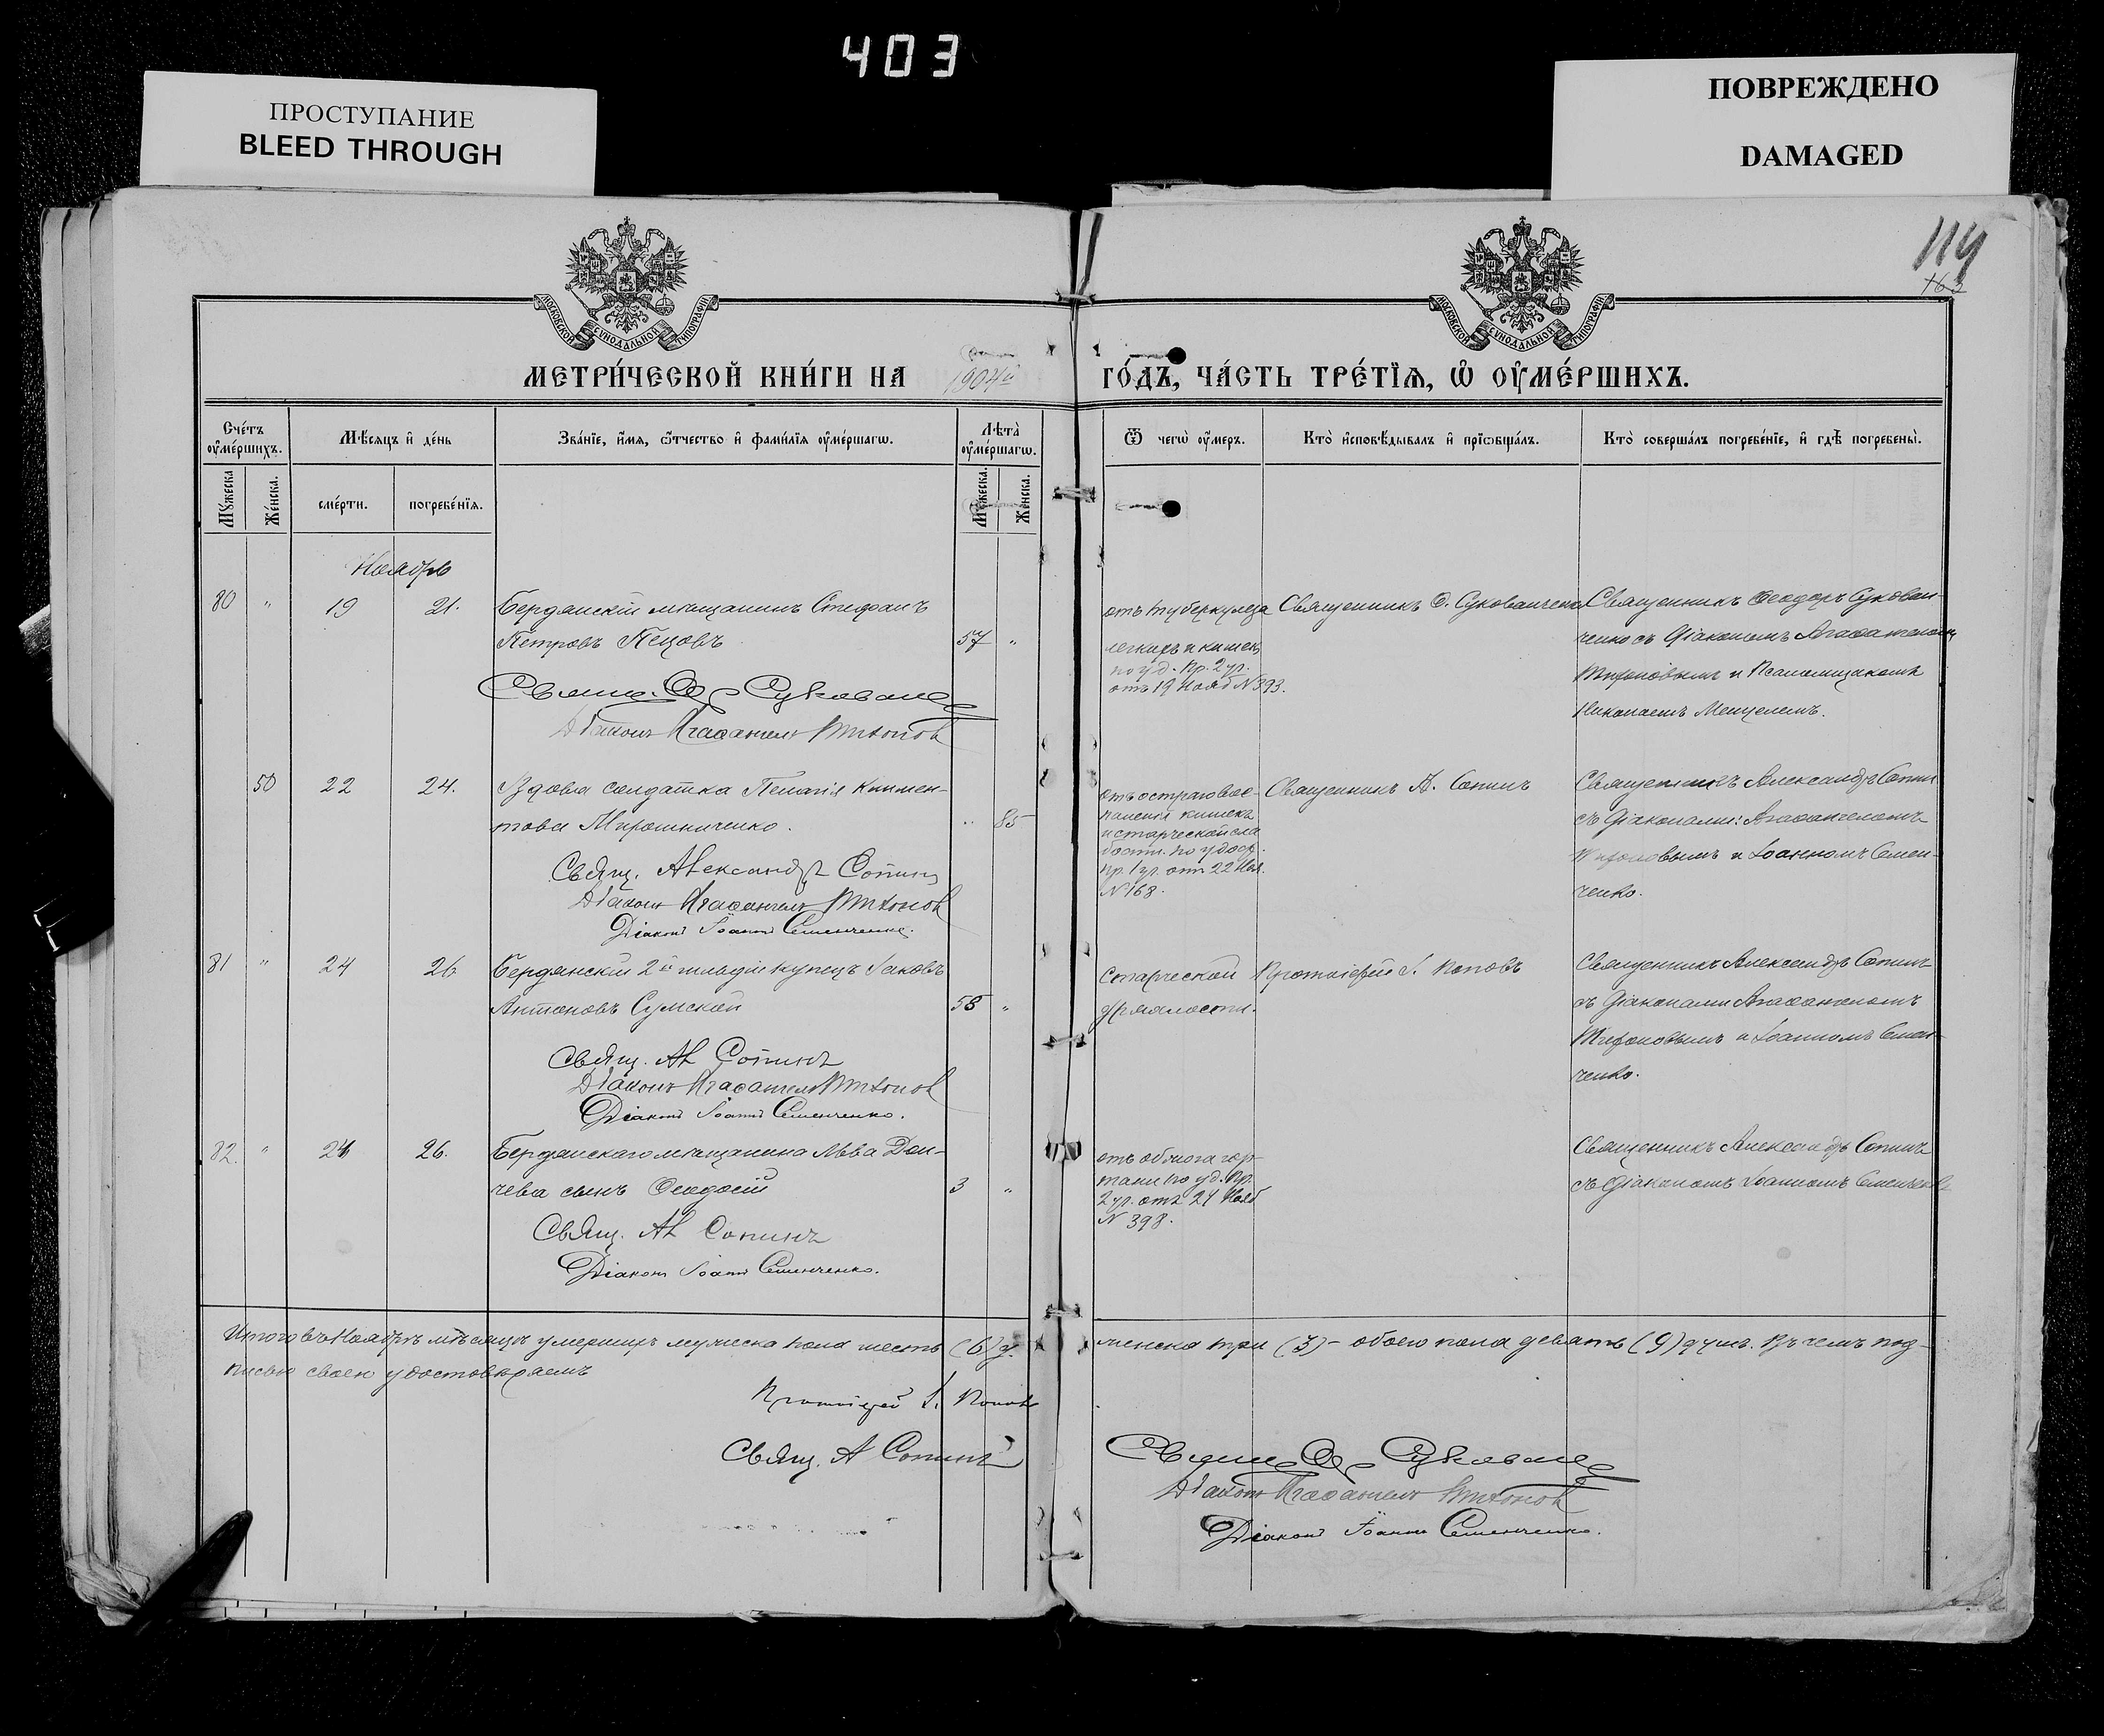 403
ПРОСТУПАНИЕ
BLEED THROUGH
ПОВРЕЖДЕНО
DAMAGED
114
163
МОСКОВСКОЙ СѴНОДАЛЬНОЙ ТИПОГРАФІИ
МОСКОВСКОЙ СѴНОДАЛЬНОЙ ТИПОГРАФІИ
МЕТРИ́ЧЕСКОЙ КНИ́ГИ НА 1904й ГО́ДЪ, ЧА́СТЬ ТРЕ́ТІѦ, Ѽ ОУ҆МЕ́РШИХЪ.
Сче́тъ оу҆ме́ршихъ.
Мꙋжеска
Же́нска.
Мѣ́сѧцъ и҆ де́нь
сме́рти.
погребе́нїѧ.
Зва́нїе, и҆́мѧ, ѻ҆́тчество и҆ фами́лїѧ оу҆ме́ршагѡ.
Лѣ́та̀ оу҆ме́ршагѡ.
Мꙋжеска.
Же́нска.
Ѿ чегѡ̀ оу҆́меръ.
Кто̀ и҆сповѣ́дывалъ и҆ прїѡбща́лъ.
Кто̀ соверша́лъ погребе́нїе, и҆ гдѣ̀ погребены̀.
Ноябрь
80 " 19 21. Бердянскій мѣщанинъ Стефанъ
Петровъ Пецовъ 57 "
Свящ. Ѳ Сукованч
Діаконъ Агафангелъ
отъ туберкулеза
легкихъ и кишек,
по уд. Пр. 2 ур.
отъ 19 Нояб N 393.
Священникъ Ѳ. Сукованченко
Священникъ Ѳеодоръ Сукован-
ченко съ Діакономъ Агафангеломъ
и Псаломщикомъ
Николаемъ
50 22 24. Вдова солдатка Пелагія Климен-
това Мирошниченко. " 85
Свящ. Александръ Сопинъ
Діаконъ Агафангелъ
Діаконъ Іоаннъ Семенченко.
отъ остраго вос-
паленія кишекъ
и старческой сла
бости. по удост.
пр. 1 ур. отъ 22 Ноя.
N 168.
Священникъ А. Сопинъ
Священникъ Александръ Сопин
съ Діаконами: Агафангеломъ
и Іоанномъ Семен-
ченко.
81 " 24 26 Бердянскій 2й гильдіи купецъ Іаковъ
Антоновъ Сумской 58 "
Свящ. Ал Сопинъ
Діаконъ Агафангелъ
Діаконъ Іоаннъ Семенченко.
Старческой
дряхлости.
Протоіерей І. Поповъ
Священникъ Александръ Сопинъ
съ Діаконами Агафангеломъ
и Іоанномъ Семен-
ченко.
82. " 24 26. Бердянскаго мѣщанина Льва Дон-
чева сынъ Ѳеодосій 3 "
Свящ. Ал Сопинъ
Діаконъ Іоаннъ Семенченко.
отъ ожога гор-
тани по уд. Пр.
2 ур. отъ 24 Нояб
N 398.
Священникъ Александръ Сопинъ
съ Діакономъ Іоанномъ Семенченко
Итого въ Ноябрѣ мѣсяцѣ умершихъ мужеска пола шесть (6) д. женска три (3) – обоего пола девять (9) душъ. Въ чемъ под-
писью своею удостовѣряемъ
Протоіерей І. Поповъ
Свящ. А Сопинъ
Свящ Ѳ Сукованч
Діаконъ Агафангелъ
Діаконъ Іоаннъ Семенченко.